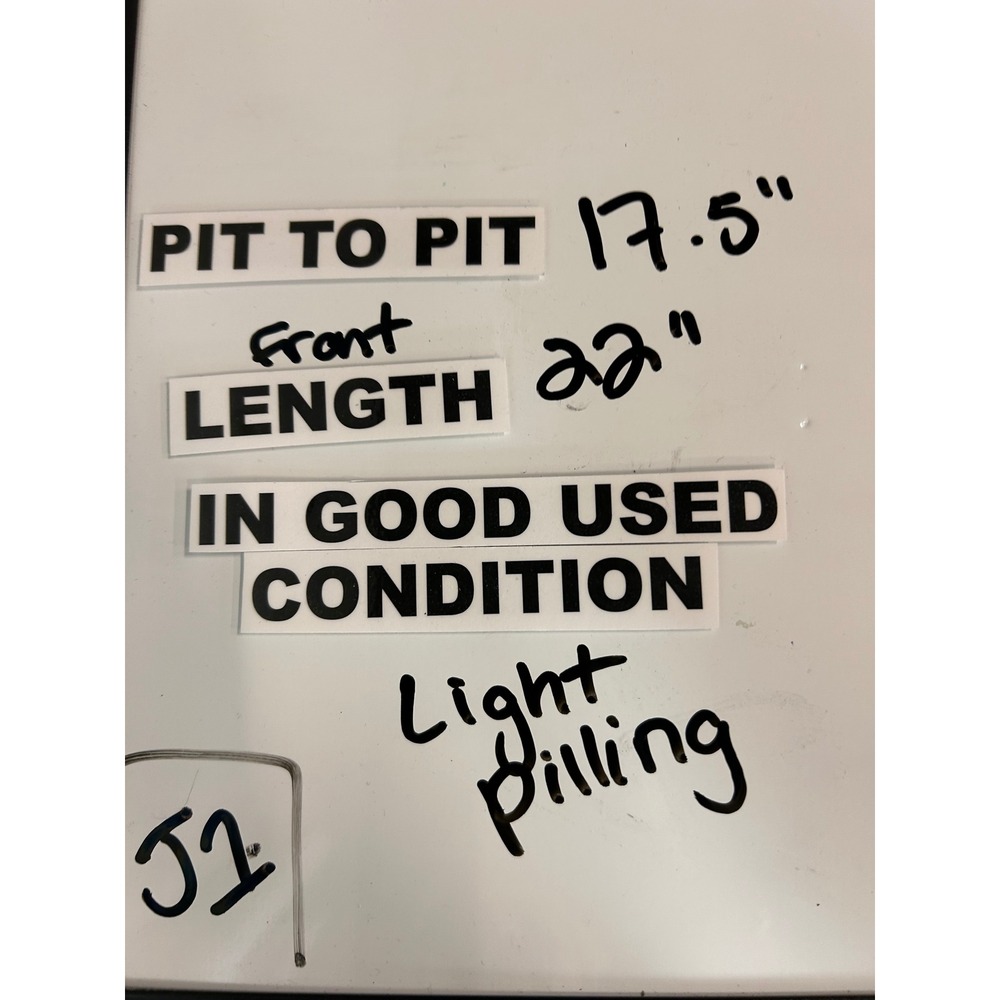 PIT TO PIT 17.5"
Front
LENGTH 22"
IN GOOD USED
CONDITION
Light
pilling
J1